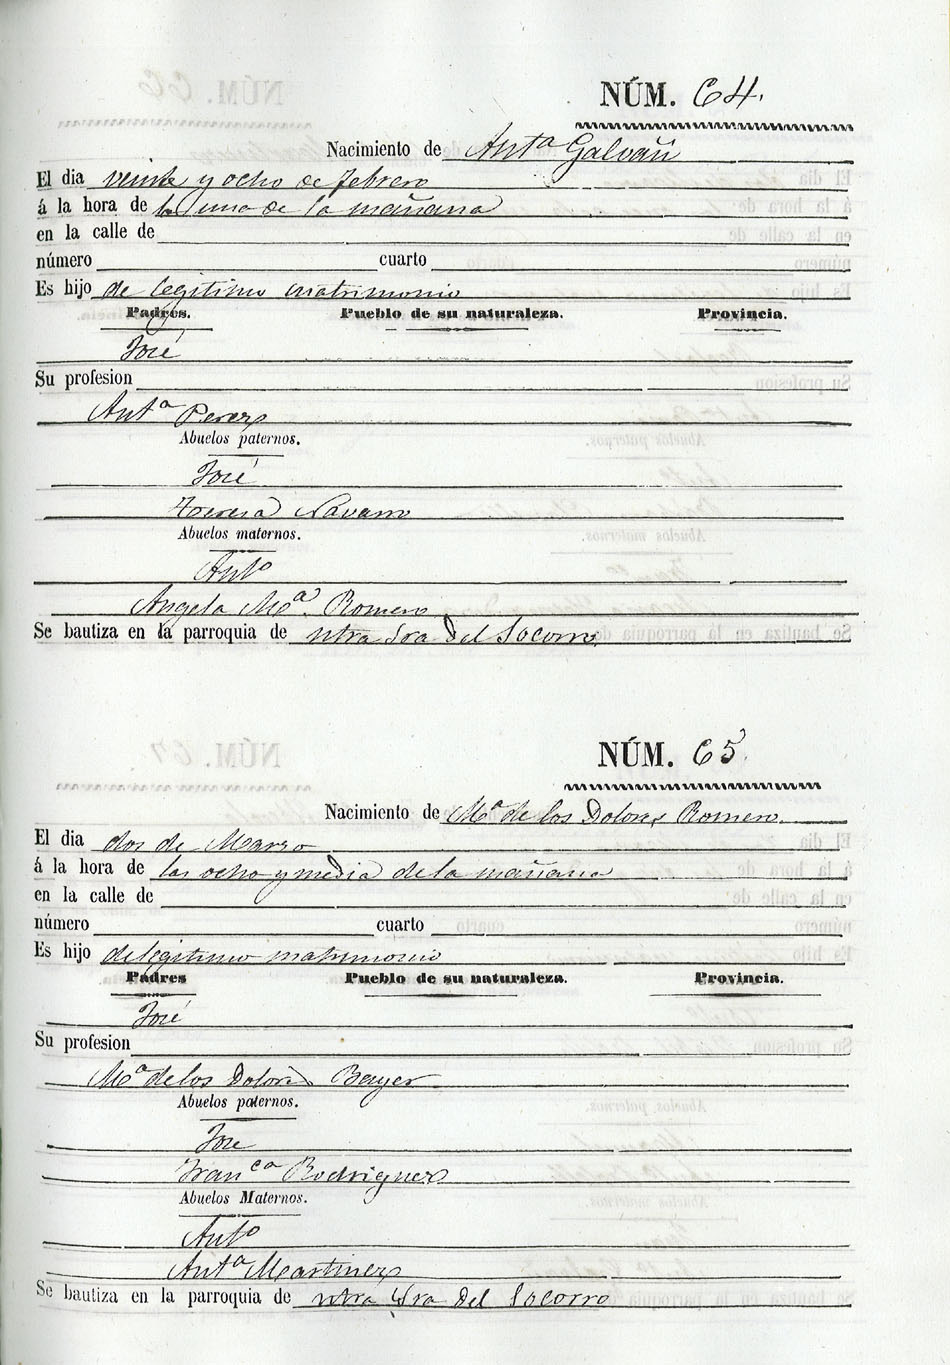 NÚM. 64.
Nacimiento de Antª Galvañ
El dia veinte y ocho de febrero
á la hora de la una de la mañana
en la calle de
número cuarto
Es hijo de legitimo matrimonio
Padres. Pueblo de su naturaleza. Provincia.
José
Su profesion
Antª Perez
Abuelos paternos.
José
Teresa Navarro
Abuelos maternos.
Antº
Angela Mª. Romero
Se bautiza en la parroquia de ntra Sra del Socorro.
NÚM. 65
Nacimiento de Mª de los Dolores Romero.
El dia dos de Marzo
á la hora de las ocho y media de la mañana
en la calle de
número cuarto
Es hijo de legitimo matrimonio
Padres Pueblo de su naturaleza. Provincia.
José
Su profesion
Mª de los Dolores Beyer
Abuelos paternos.
José
Franᶜᵃ Rodriguez
Abuelos Maternos.
Antº
Antª Martinez
Se bautiza en la parroquia de ntra Sra del Socorro